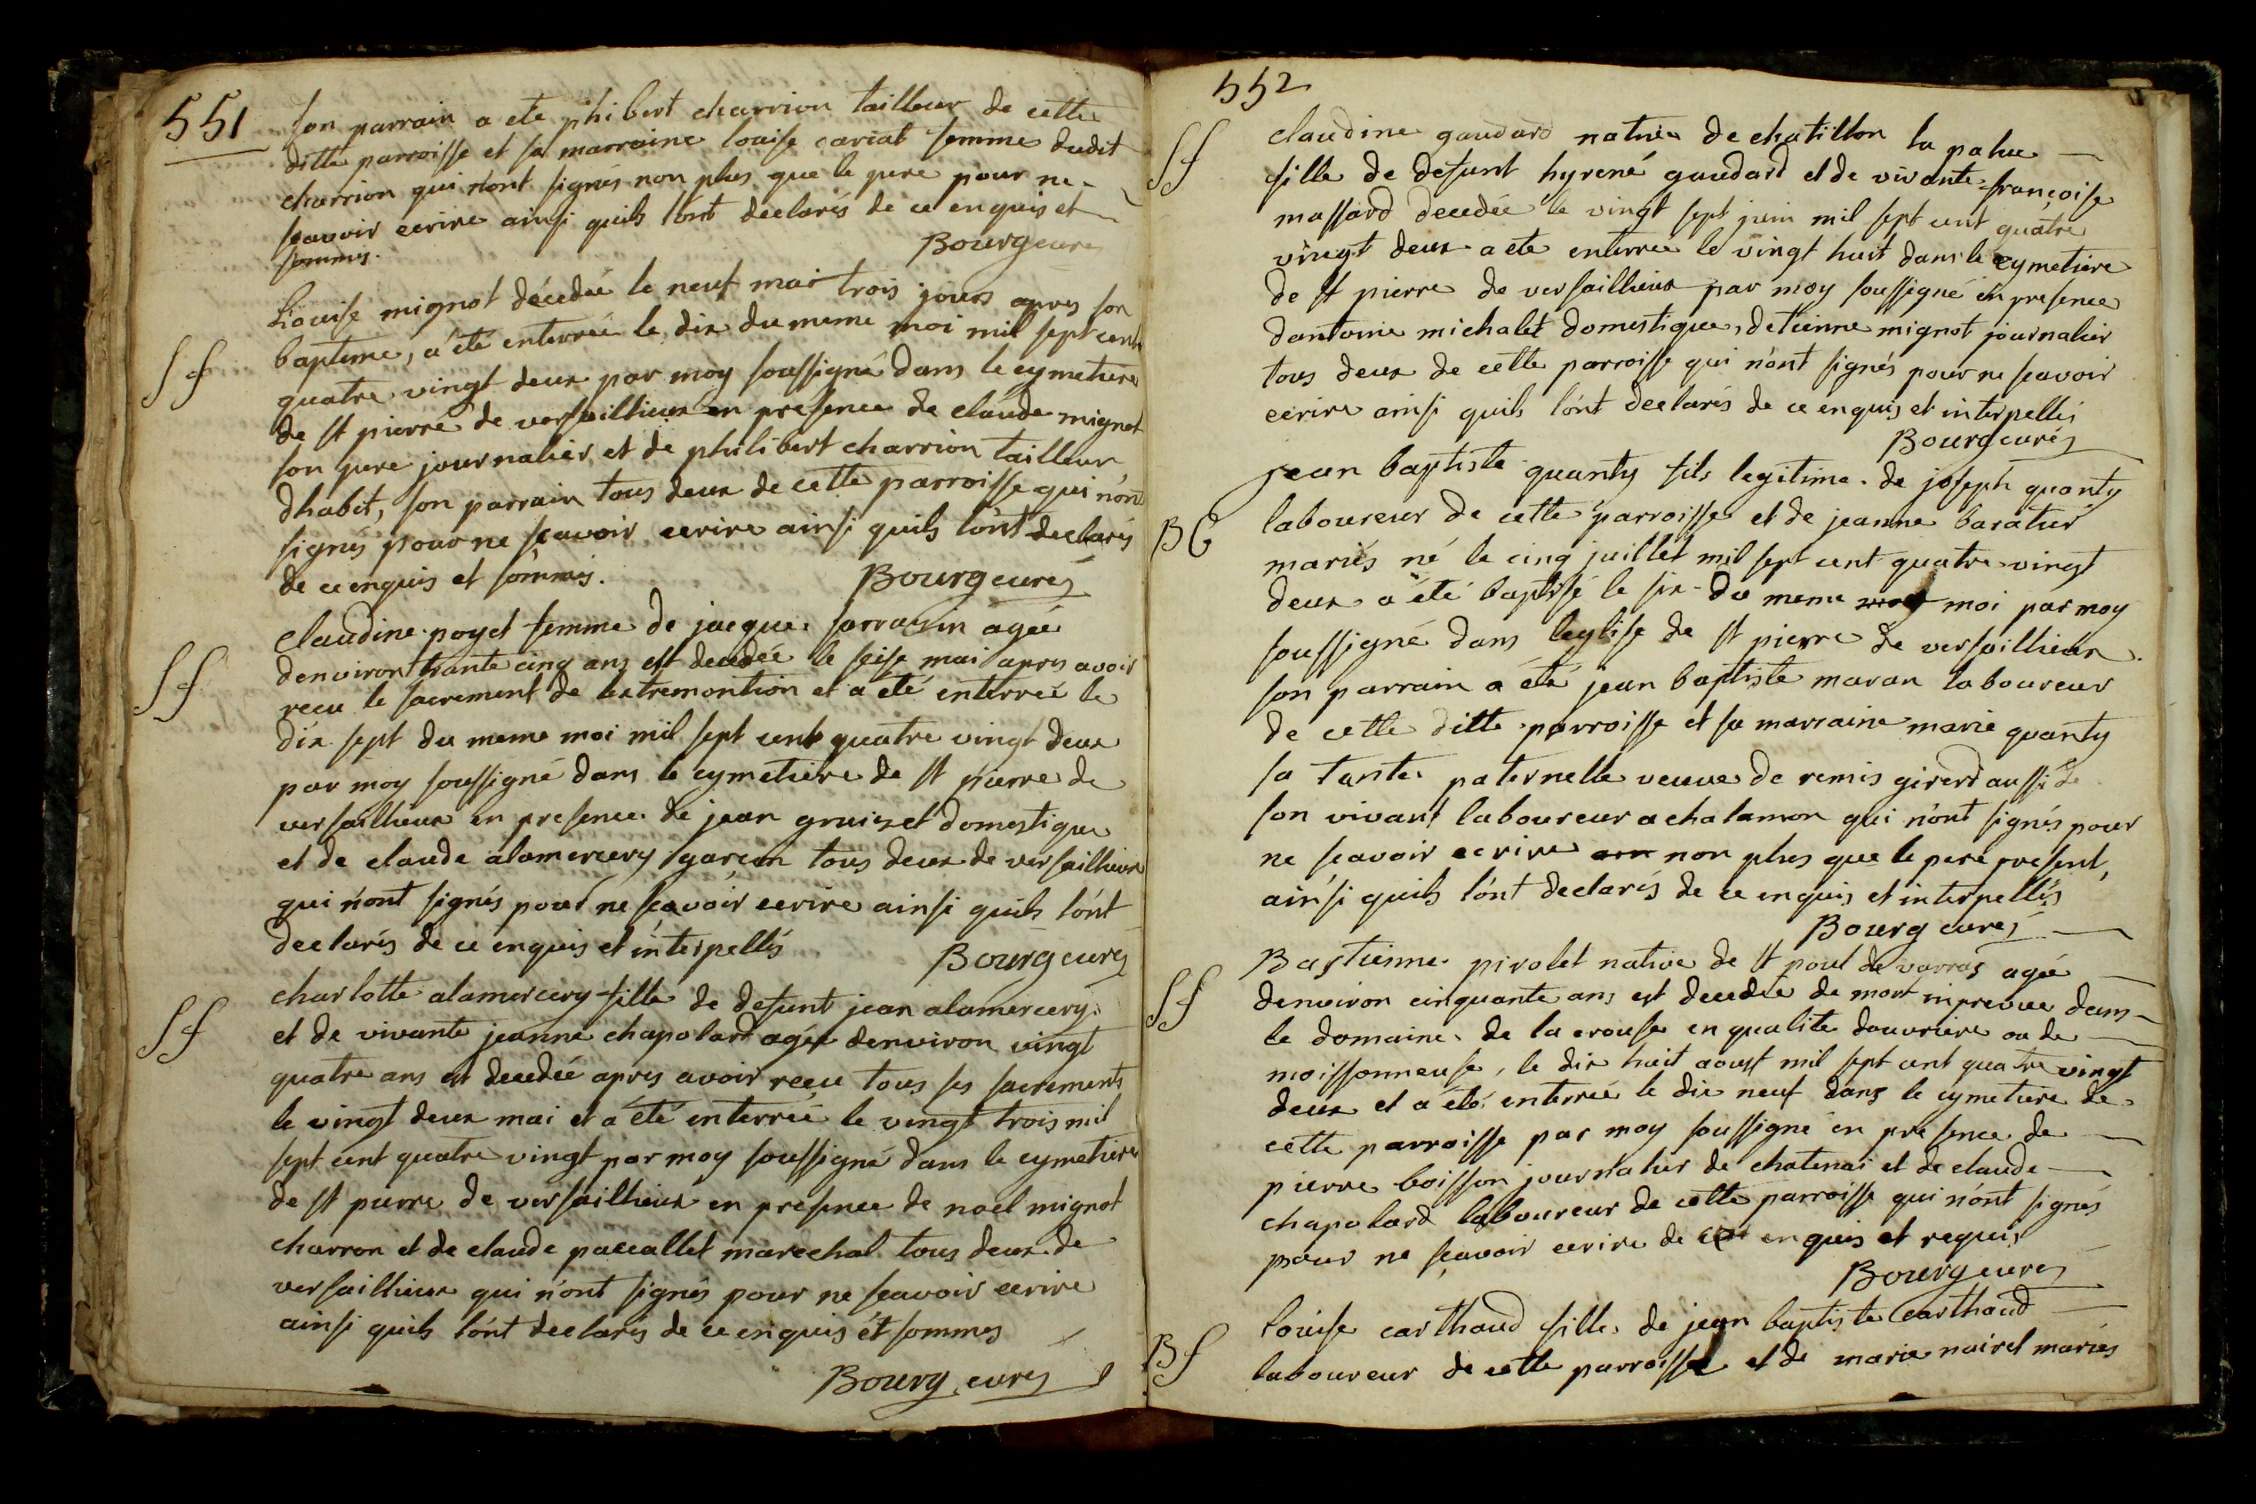 551
son parrain a ete phibert charrion tailleur de cette
ditte parroisse et sa marraine louise cariat femme dudit
charrion qui n'ont signés non plus que le pere pour ne
scavoir ecrire ainsi quils l'ont declarés de ce enquis et
sommés.
Bourg curé
Sf
Louise mignot décedée le neuf mai trois jours apres son
bapteme, a été enterrée le dix du meme moi mil sept cents
quatre vingt deux par moy soussigné dans le cymetiere
de st pierre de versaillieux en presence de claude mignot
son pere journalier et de philibert charrion tailleur
dhabit, son parrain tous deux de cette parroisse qui n'ont
signés pour ne scavoir ecrire ainsi quils l'ont declarés
de ce enquis et sommés.
Bourg curé
Sf
claudine poyet femme de jacque sarrasin agée
denviron trante cinq ans est decedée le seise mai apres avoir
recu le sacrement de lextremontion et a été enterrée le
dix sept du meme moi mil sept cent quatre vingt deux
par moy soussigné dans le cymetiere de st pierre de
versaillieux en presence de jean gruizet domestique
et de claude alamercery garcon tous deux de versaillieux
qui n'ont signés pour ne scavoir ecrire ainsi quils l'ont
declarés de ce enquis et interpellés
Bourg curé
Sf
charlotte alamercery fille de defunt jean alamercery
et de vivante jeanne chapolard agée denviron vingt
quatre ans est decedée apres avoir recu tous ses sacrements
le vingt deux mai et a été enterrée le vingt trois mil
sept cent quatre vingt par moy soussigné dans le cymetiere
de st pierre de versaillieux en presence de noel mignot
charron et de claude paccallet marechal tous deux de
versaillieux qui n'ont signés pour ne scavoir ecrire
ainsi quils l'ont declarés de ce enquis et sommes
Bourg curé
552
Sf
claudine gaudard native de chatillon la palue
fille de defunt hyrené gaudard et de vivante françoise
massard decedée le vingt sept juin mil sept cent quatre
vingt deux a ete enterree le vingt huit dans le cymetiere
de st pierre de versaillieux par moy soussigné en presence
dantoine michalet domestique, detienne mignot journalier
tous deux de cette parroisse qui n'ont signés pour ne scavoir
ecrire ainsi quils l'ont declarés de ce enquis et interpellés
Bourg curé
BG
jean baptiste quanty fils legitime de joseph quanty
laboureur de cette parroisse et de jeanne baratier
mariés né le cinq juillet mil sept cent quatre vingt
deux a été baptisé le six du meme moi par moy
soussigné dans leglise de st pierre de versaillieux
son parrain a été jean baptiste maran laboureur
de cette ditte parroisse et sa marraine marie quanty
sa tante paternelle veuve de remis girerd aussi de
son vivant laboureur a chalamon qui n'ont signés pour
ne scavoir ecrire non plus que le pere present,
ainsi quils l'ont declarés de ce enquis et interpellés
Bourg curé
Sf
Bastienne pivolet native de st poul de varras agée
denviron cinquante ans est decedée de mort imprevue dans
le domaine de la crouse en qualite douvriere ou de
moissonneuse, le dix huit aoust mil sept cent quatre vingt
deux et a été enterrée le dix neuf dans le cymetiere de
cette parroisse par moy soussigné en presence de
pierre boisson journalier de chatenai et de claude
chapolard laboureur de cette parroisse qui n'ont signés
pour ne scavoir ecrire de ce enquis et requis
Bourg curé
Bf
Louise carthaud fille de jean baptiste carthaud
laboureur de cette parroisse et de marie nairet mariés